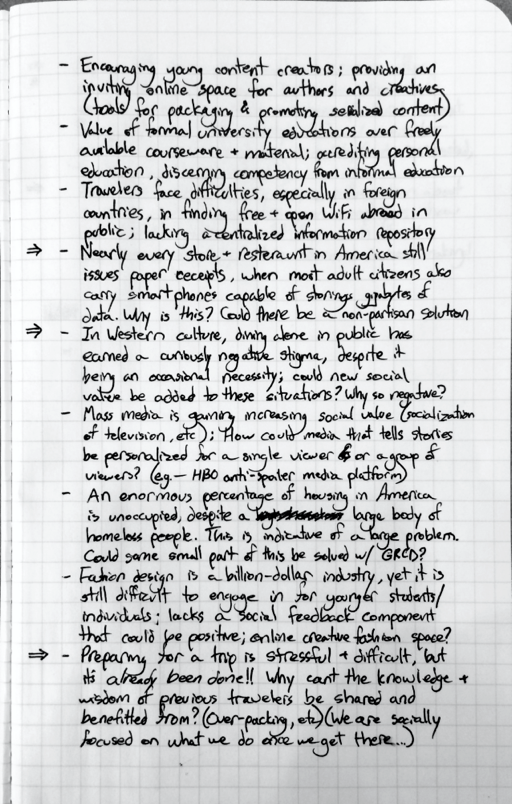 - Encouraging young content creators; providing an
inviting online space for authors and creatives
(tools for packaging & promoting serialized content)
- Value of formal university educations over freely
available courseware + material; accrediting personal
education, discerning competency from informal education
- Travelers face difficulties, especially in foreign
countries, in finding free + open WiFi abroad in
public; lacking a centralized information repository
⇒ - Nearly every store + resteraunt in America still
issues paper receipts, when most adult citizens also
carry smartphones capable of storing gigabytes of
data. Why is this? Could there be a non-partisan solution
⇒ - In Western culture, dining alone in public has
earned a curiously negative stigma, despite it
being an occasional necessity; could new social
value be added to these situations? Why so negative?
- Mass media is gaining increasing social value (socialization
of television, etc); How could media that tells stories
be personalized for a single viewer or a group of
viewers? (eg. - HBO anti-spoiler media platform)
- An enormous percentage of housing in America
is unoccupied, despite a large body of
homeless people. This is indicative of a large problem.
Could some small part of this be solved w/ GRCD?
- Fashion design is a billion-dollar industry, yet it is
still difficult to engage in for younger students/
individuals; lacks a social feedback component
that could be positive; online creative fashion space?
⇒ - Preparing for a trip is stressful + difficult, but
it's already been done!! Why can't the knowledge +
wisdom of previous travelers be shared and
benefitted from? (Over-packing, etc) (We are socially
focused on what we do once we get there...)